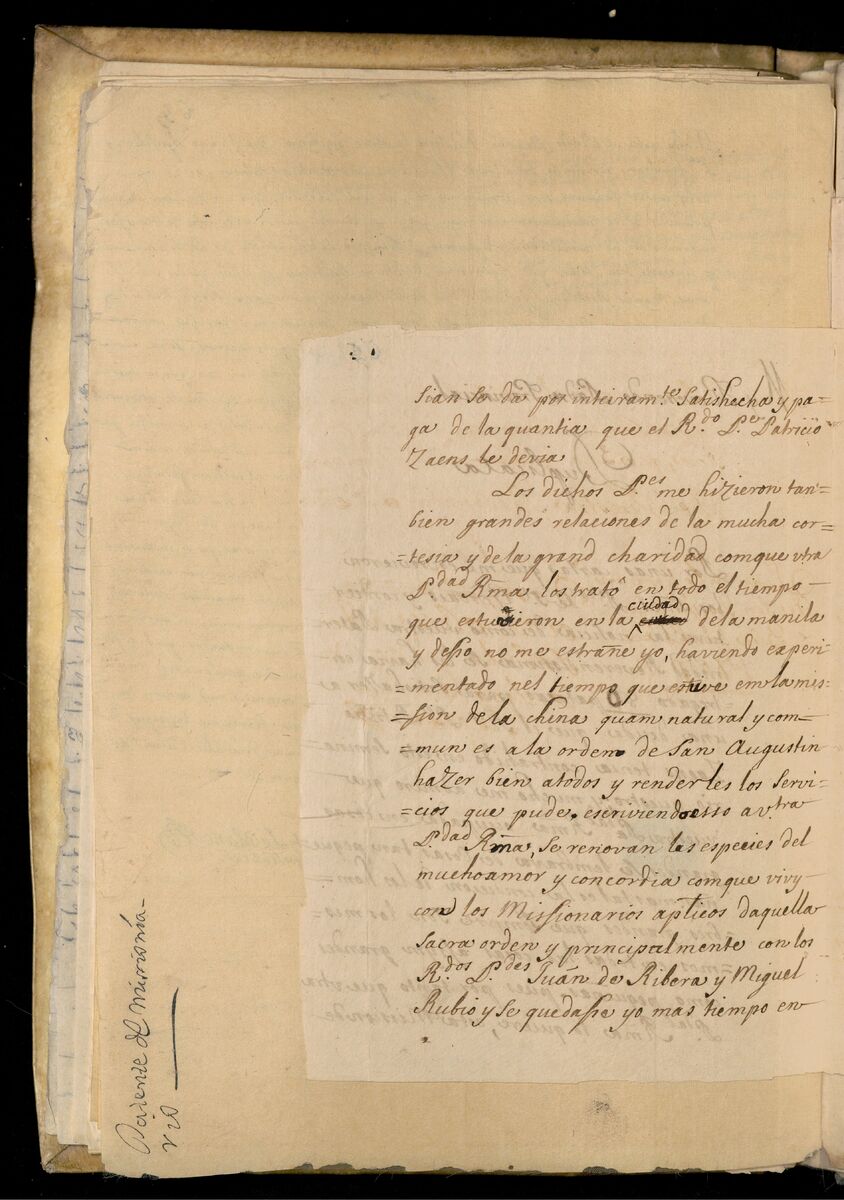 sian se da por inteiram.te satishecha y pa=
ga de la quantia que el R.do P.e Patricio
Zaens le devia
Los dichos P.es me hizieron tan=
bien grandes relaciones de la mucha cor=
=tesia y de la grand charidad comque vtra
P.dad Rma los trató en todo el tiempo
que estuvieron en la ciudad de la manila
y desso no me estrañe yo, haviendo experi=
=mentado nel tiempo que estive em la mis=
=sion de la china quam natural y com=
=mun es a la orden de San Augustin
hazer bien a todos y renderles los servi=
=cios que pude. escriviendo esso a v.tra
P.dad Rma, se renovan las especies del
mucho amor y concordia comque vivy
con los Missionarios aptlicos daquella
sacra orden y principalmente con los
R.dos P.des Juan de Ribera y Miguel
Rubio y se quedasse yo mas tiempo en